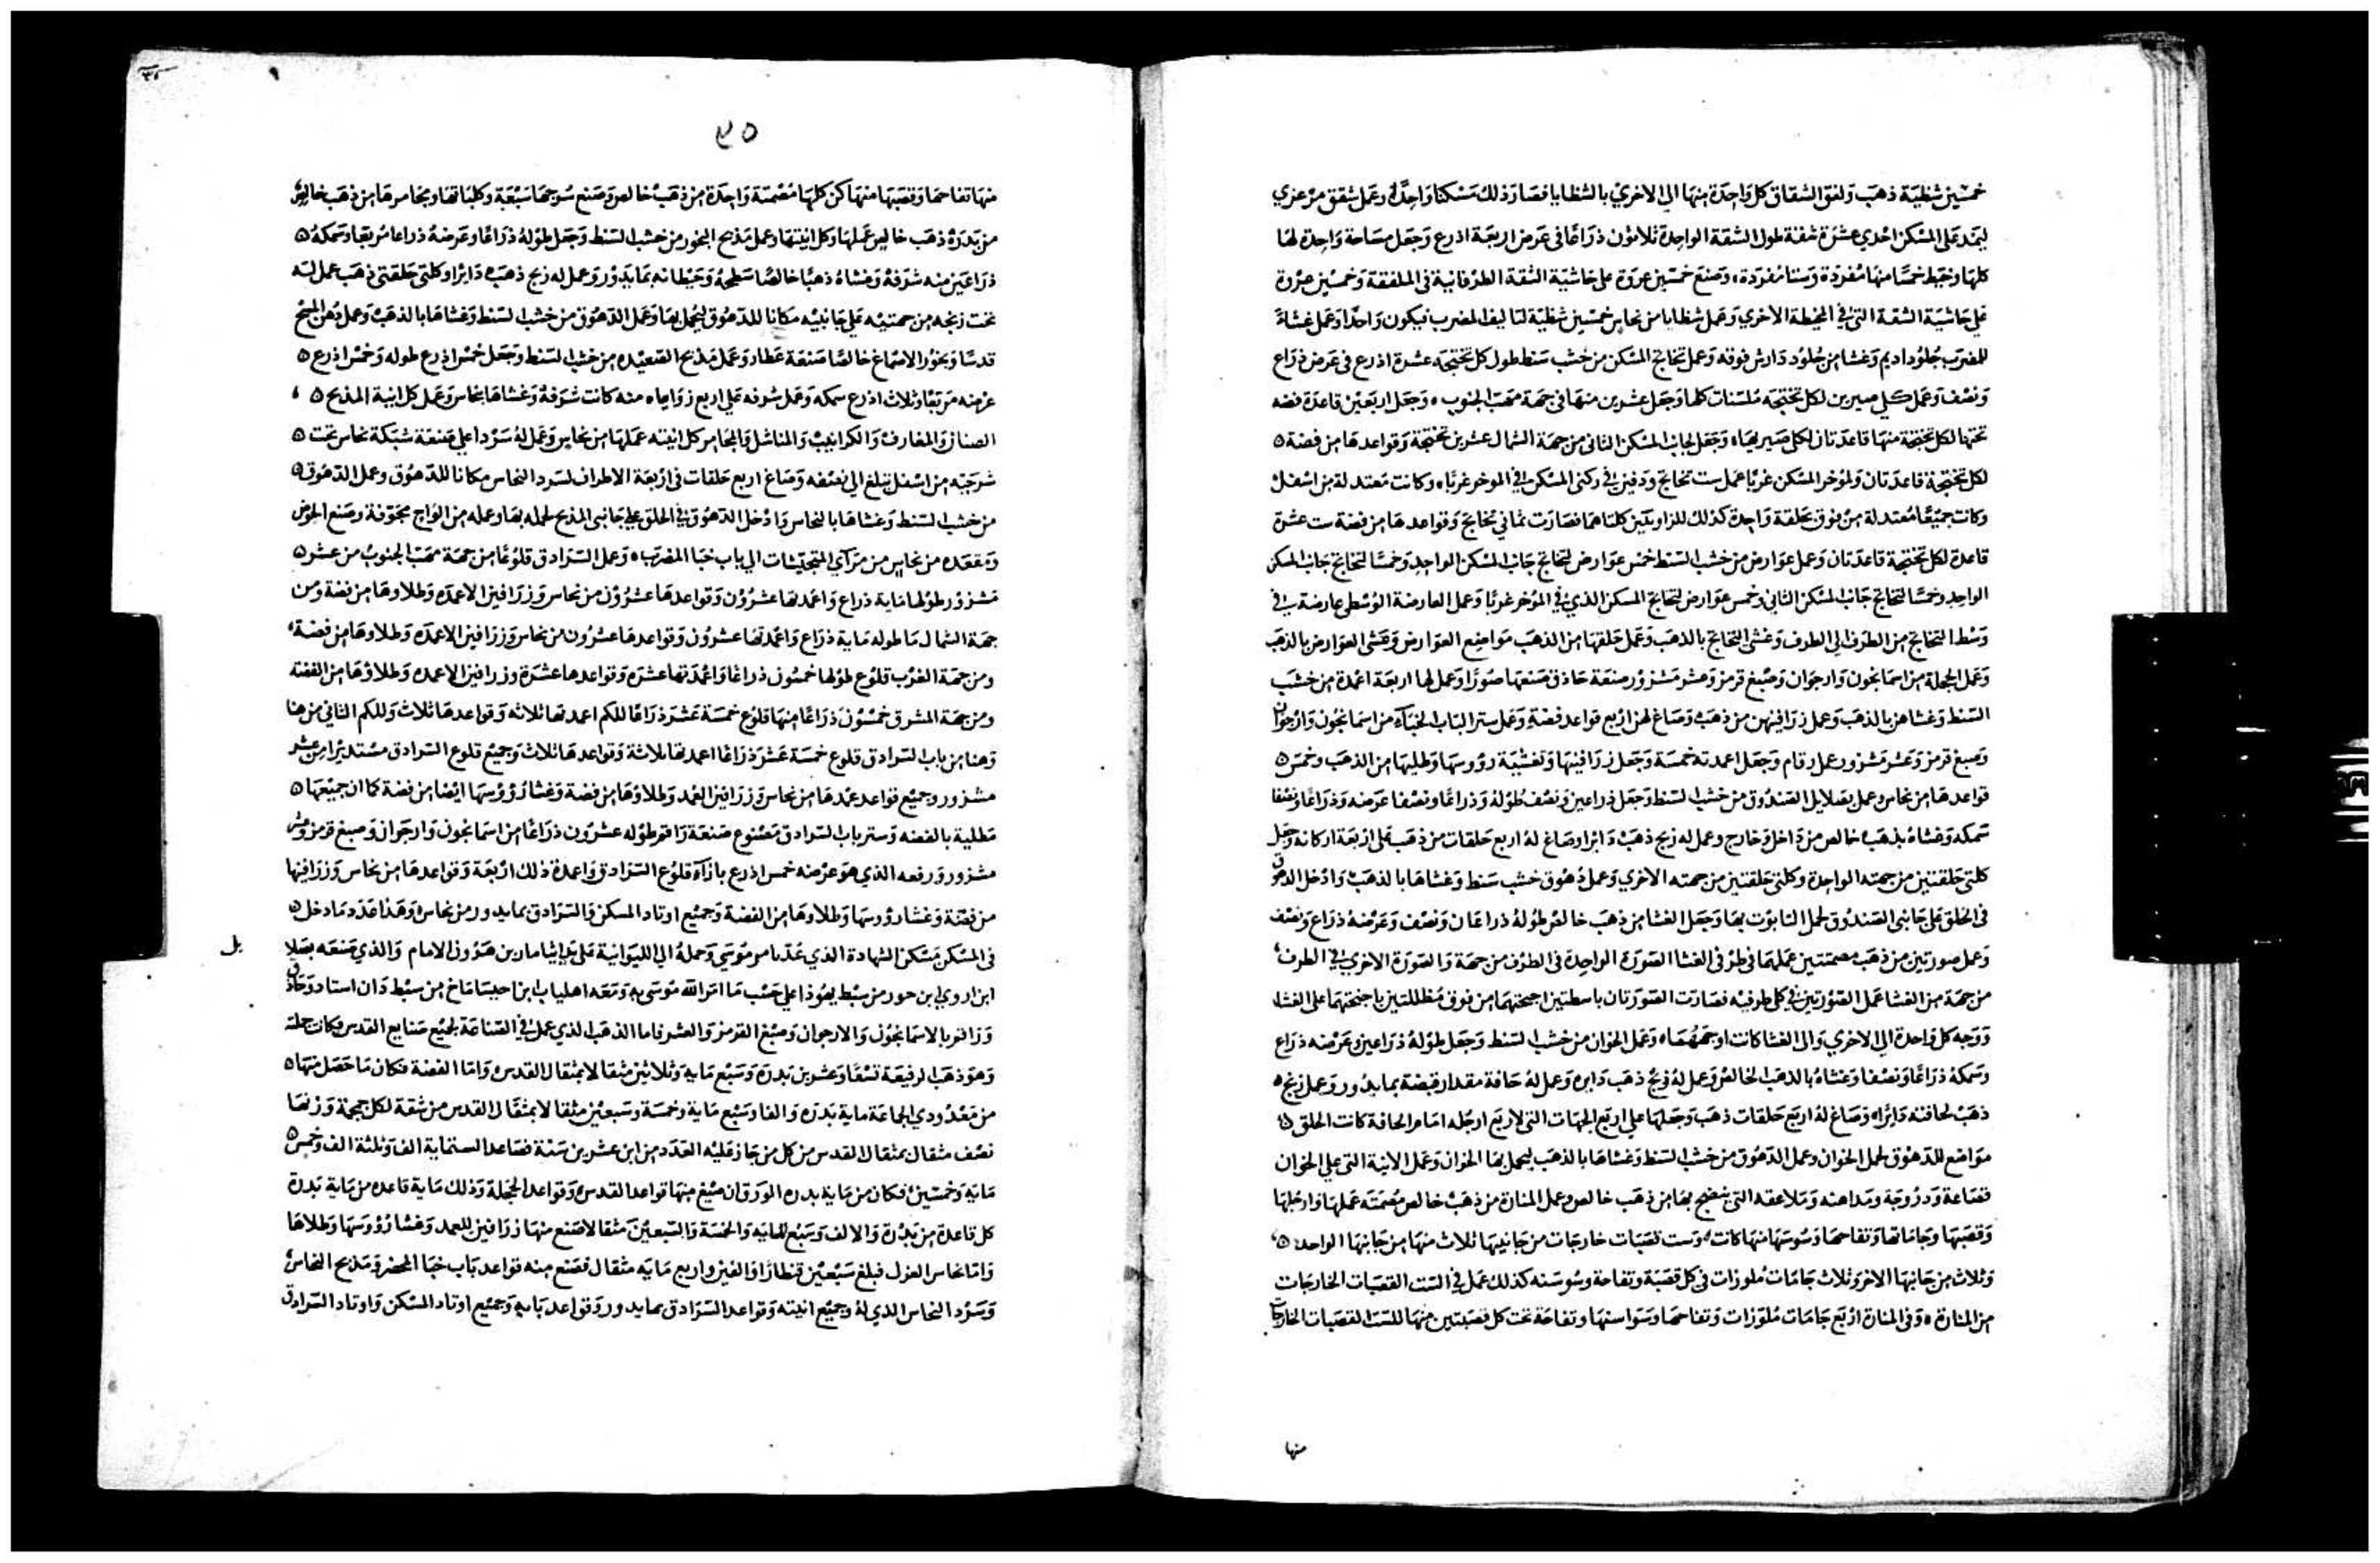 خمسين شظية ذهب ولفق الشقاق كل واحدة منها الى الاخري بالشظايا فصار ذلك مسكنا واحدا وعمل شقق مرعزي
ليمد على المسكن احدي عشرة شقة طول الشقة الواحدة ثلاثون ذراعا في عرض اربعة اذرع وجعل مساحة واحدة لها
كلها وخيط خمسا منها مفردة وستا مفردة وصنع خمسين عروة على حاشية الشقة الطرفانية في الملفقة وخمسين عروة
على حاشية الشقة التي في المخيطة الاخري وعمل شظايا من نحاس خمسين شظية لتاليف المضرب فيكون واحدا وعمل غشاء
للمضرب جلود اديم وغشا من جلود دارش فوقه وعمل تخاتج المسكن من خشب سنط طول كل تختجه عشرة اذرع في عرض ذراع
ونصف وعمل كلي صيرين لكل تختجه ملسنات كلها وجعل عشرين منها في جهة مهب الجنوب وجعل اربعين قاعدة فضه
تحتها لكل تختجة منها قاعدتان لكلي صيريها وجعل لجانب المسكن الثاني من جهة الشمال عشرين تختجة وقواعدها من فضة
لكل تختجة قاعدتان ولمؤخر المسكن غربا عمل ست تخاتج ودفين في ركني المسكن في الموخر غربا وكانت معتدلة من اسفل
وكانت جميعا معتدلة من فوق بحلقة واحدة كذلك للزاويتين كلتاهما فصارت ثماني تخاتج وقواعدها من فضة ست عشرة
قاعدة لكل تختجة قاعدتان وعمل عوارض من خشب السنط خمس عوارض لتخاتج جانب المسكن الواحد وخمسا لتخاتج جانب المسكن
الواحد وخمسا لتخاتج جانب المسكن الثاني وخمس عوارض لتخاتج المسكن الذي في المؤخر غربا وعمل العارضة الوسطى عارضة في
وسط التخاتج من الطرف الى الطرف وغشى التخاتج بالذهب وعمل حلقها من الذهب مواضع العوارض وغشى العوارض بالذهب
وعمل الحجلة من اسمانجون وارجوان وصبغ قرمز وعشر مشزور صنعة حاذق صنعها صورا وعمل لها اربعة اعمدة من خشب
السنط وغشاهن بالذهب وعمل زرافينهن من ذهب وصاغ لهن اربع قواعد فضة وعمل ستر الباب الخباء من اسمانجون وارجوان
وصبغ قرمز وعشر مشزور عمل رقام وجعل اعمدته خمسة وجعل زرافينها وتغشية رؤوسها وطليها من الذهب وخمس
قواعدها من نحاس وعمل بصلايل الصندوق من خشب السنط وجعل ذراعين ونصف طوله وذراعا ونصفا عرضه وذراعا ونصفا
سمكه وغشاه بذهب خالص من داخل وخارج وعمل له زيج ذهب دايرا وصاغ له اربع حلقات من ذهب على اربعة اركانه وجعل
كلتي حلقتين من جهته الواحدة وكلتي حلقتين من جهته الاخري وعمل دهوق خشب سنط وغشاها بالذهب وادخل الدهوق
في الحلق على جانبي الصندوق لحمل التابوت بها وجعل الغشا من ذهب خالص طوله ذراعان ونصف وعرضه ذراع ونصف
وعمل صورتين من ذهب مصمتتين عملهما في طرفي الغشا الصورة الواحدة في الطرف من جهة والصورة الاخري في الطرف
من جهة من الغشا عمل الصورتين في كلي طرفيه فصارت الصورتان باسطتين اجنحتهما من فوق مظللتين باجنحتهما على الغشا
ووجه كل واحدة الى الاخري والى الغشا كانت اوجههما وعمل الخوان من خشب السنط وجعل طوله ذراعين وعرضه ذراع
وسمكه ذراعا ونصفا وغشاه بالذهب الخالص وعمل له زيج ذهب دايره وعمل له حافة مقدار قبضة بمايدور وعمل زيج
ذهب لحافته دايرا وصاغ له اربع حلقات ذهب وجعلها على اربع الجهات التي لاربع ارجله امام الحافة كانت الحلق
مواضع للدهوق لحمل الخوان وعمل الدهوق من خشب السنط وغشاها بالذهب ليحمل بها الخوان وعمل الانية التي على الخوان
قصاعة ودروجة ومداهنه وملاعقه التي ينضح بها من ذهب خالص وعمل المنارة من ذهب خالص مصمتة عملها وارجلها
وقصبتها وجاماتها وتفاحها وسوسنها منها كانت وست قصبات خارجات من جانبيها ثلاث منها من جانبها الواحد
وثلاث من جانبها الاخر وثلاث جامات ملوزات في كل قصبة وتفاحة وسوسنه كذلك عمل في الست القصبات الخارجات
من المنارة وفي المنارة اربع جامات ملوزات وتفاحها وسواسنها وتفاحة تحت كل قصبتين منها للست القصبات الخارجات
منها
٩٥
منها تفاحها وقصبها منها كن كلها مصمتة واحدة من ذهب خالص وصنع سرجها سبعة وكلباتها ومجامرها من ذهب خالص
من بدرة ذهب خالص عملها وكل انيتها وعمل مذبح البخور من خشب السنط وجعل طوله ذراعا وعرضه ذراعا مربعا وسمكه
ذراعين منه شرفه وغشاه ذهبا خالصا سطحه وحيطانه بمايدور وعمل له زيج ذهب دايرا وكلتي حلقتي ذهب عمل له
تحت زيجه من جهتيه على جانبيه مكانا للدهوق ليحمل بها وعمل الدهوق من خشب السنط وغشاها بالذهب وعمل دهن المسح
قدسا وبخور الاصماغ خالصا صنعة عطار وعمل مذبح الصعيده من خشب السنط وجعل خمس اذرع طوله وخمس اذرع
عرضه مربعا وثلاث اذرع سمكه وعمل شرفه على اربع زواياه منه كانت شرفه وغشاها بنحاس وعمل كل انية المذبح
الصنانر والمغارف والكرانيب والمناشل والمجامر كل انيته عملها من نحاس وعمل له سردا على صنعة شبكة نحاس تحت
شرجبه من اسفل تبلغ الى نصفه وصاغ اربع حلقات في اربعة الاطراف لسرد النحاس مكانا للدهوق وعمل الدهوق
من خشب السنط وغشاها بالنحاس وادخل الدهوق في الحلق على جانبي المذبح لحمله بها وعمله من الواح مجوفة وصنع الحوض
ومقعده من نحاس من مرآي المتجيشات الى باب خبا المضرب وعمل السرادق قلوعا من جهة مهب الجنوب من عشر
مشزور طولها ماية ذراع واعمدتها عشرون وقواعدها عشرون من نحاس وزرافين الاعمدة وطلاوها من فضة ومن
جهة الشمال ما طوله ماية ذراع واعمدتها عشرون وقواعدها عشرون من نحاس وزرافين الاعمدة وطلاوها من فضة
ومن جهة الغرب قلوع طولها خمسون ذراعا واعمدتها عشرة وقواعدها عشرة وزرافين الاعمدة وطلاؤها من الفضة
ومن جهة المشرق خمسون ذراعا منها قلوع خمسة عشر ذراعا للكم اعمدتها ثلاثه وقواعدها ثلاث وللكم الثاني من هنا
وهنا من باب السرادق قلوع خمسة عشر ذراعا اعمدتها ثلاثة وقواعدها ثلاث وجميع قلوع السرادق مستديرا من عشر
مشزور وجميع قواعد عمدها من نحاس وزرافين العمد وطلاؤها من فضة وغشا رؤوسها ايضا من فضة كما ان جميعها
مطلية بالفضه وستر باب السرادق مصنوع صنعة راقم طوله عشرون ذراعا من اسمانجون وارجوان وصبغ قرمز وعشر
مشزور ورفعه الذي هو عرضه خمس اذرع بازآء قلوع السرادق واعمدة ذلك اربعة وقواعدها من نحاس وزرافينها
من فضة وغشا رؤوسها وطلاوها من الفضة وجميع اوتاد المسكن والسرادق بمايدور من نحاس وهذا عدد مادخل
في المسكن مسكن الشهادة الذي عد بامر موسي وحمله الى الليوانية على يد ايثامار بن هرون الامام والذي صنعه بصلايل
ابن اوري ابن حور من سبط يهوذا على حسب ما امر الله موسى به ومعه اهلياب ابن احيساماخ من سبط دان استاد وحاذق
وراقم بالاسمانجون والارجوان وصبغ القرمز والعشر فاما الذهب الذي عمل في الصناعة لجميع صنايع القدس فكان جملة
وهو ذهب الرفيعة تسعا وعشرين بدرة وسبع ماية وثلاثين مثقالا بمثقال القدس واما الفضة فكان ما حصل منها
من معدودي الجماعة ماية بدره والفا وسبع ماية وخمسة وسبعين مثقالا بمثقال القدس من شقة لكل جمجمة وزنها
نصف مثقال بمثقال القدس من كل من جاز عليه العدد من ابن عشرين سنة فصاعدا لستماية الف وثلثة الف وخمس
ماية وخمسين فكان من ماية بدره الورق ان صيغ منها قواعد القدس وقواعد الحجلة وذلك ماية قاعده من ماية بدرة
كل قاعدة من بدرة والالف وسبع المايه والخمسة والسبعين مثقالا صنع منها زرافين للعمد وغشا رؤوسها وطلاها
واما نحاس العزل فبلغ سبعين قنطارا والفين واربع مايه مثقال فصنع منه قواعد باب خبا المحضر ومذبح النحاس
وسرد النحاس الذي له وجميع انيته وقواعد السرادق بمايدور وقواعد بابه وجميع اوتاد المسكن واوتاد السرادق